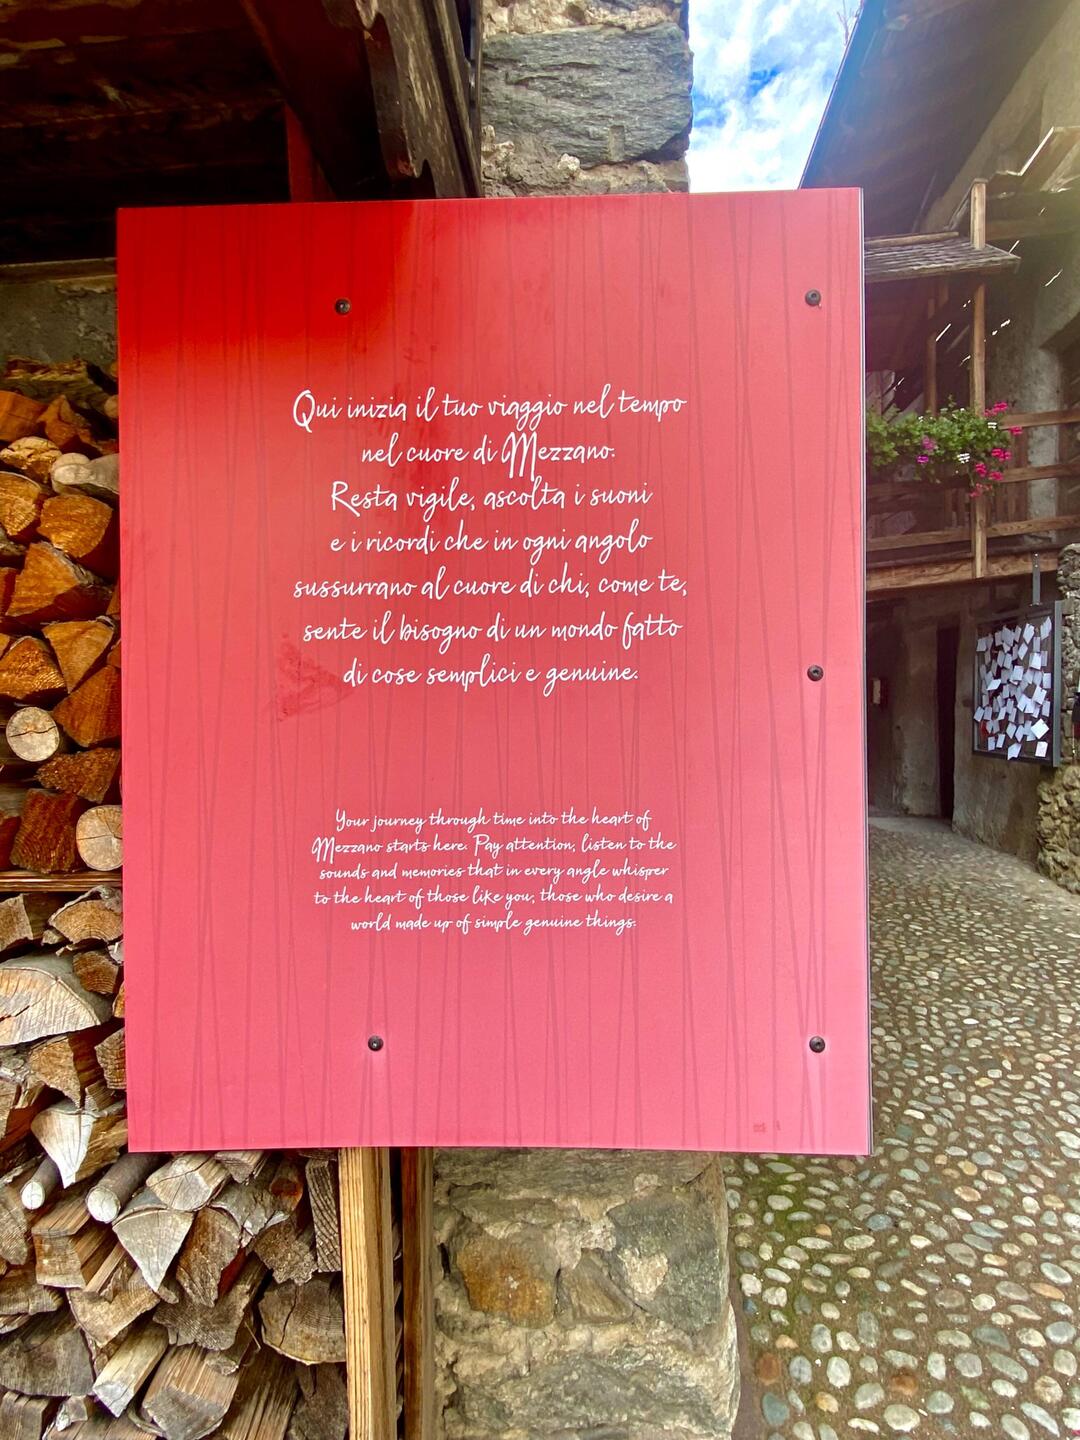 Qui inizia il tuo viaggio nel tempo
nel cuore di Mezzano.
Resta vigile, ascolta i suoni
e i ricordi che in ogni angolo
sussurrano al cuore di chi, come te,
sente il bisogno di un mondo fatto
di cose semplici e genuine.
Your journey through time into the heart of
Mezzano starts here. Pay attention, listen to the
sounds and memories that in every angle whisper
to the heart of those like you, those who desire a
world made up of simple genuine things.